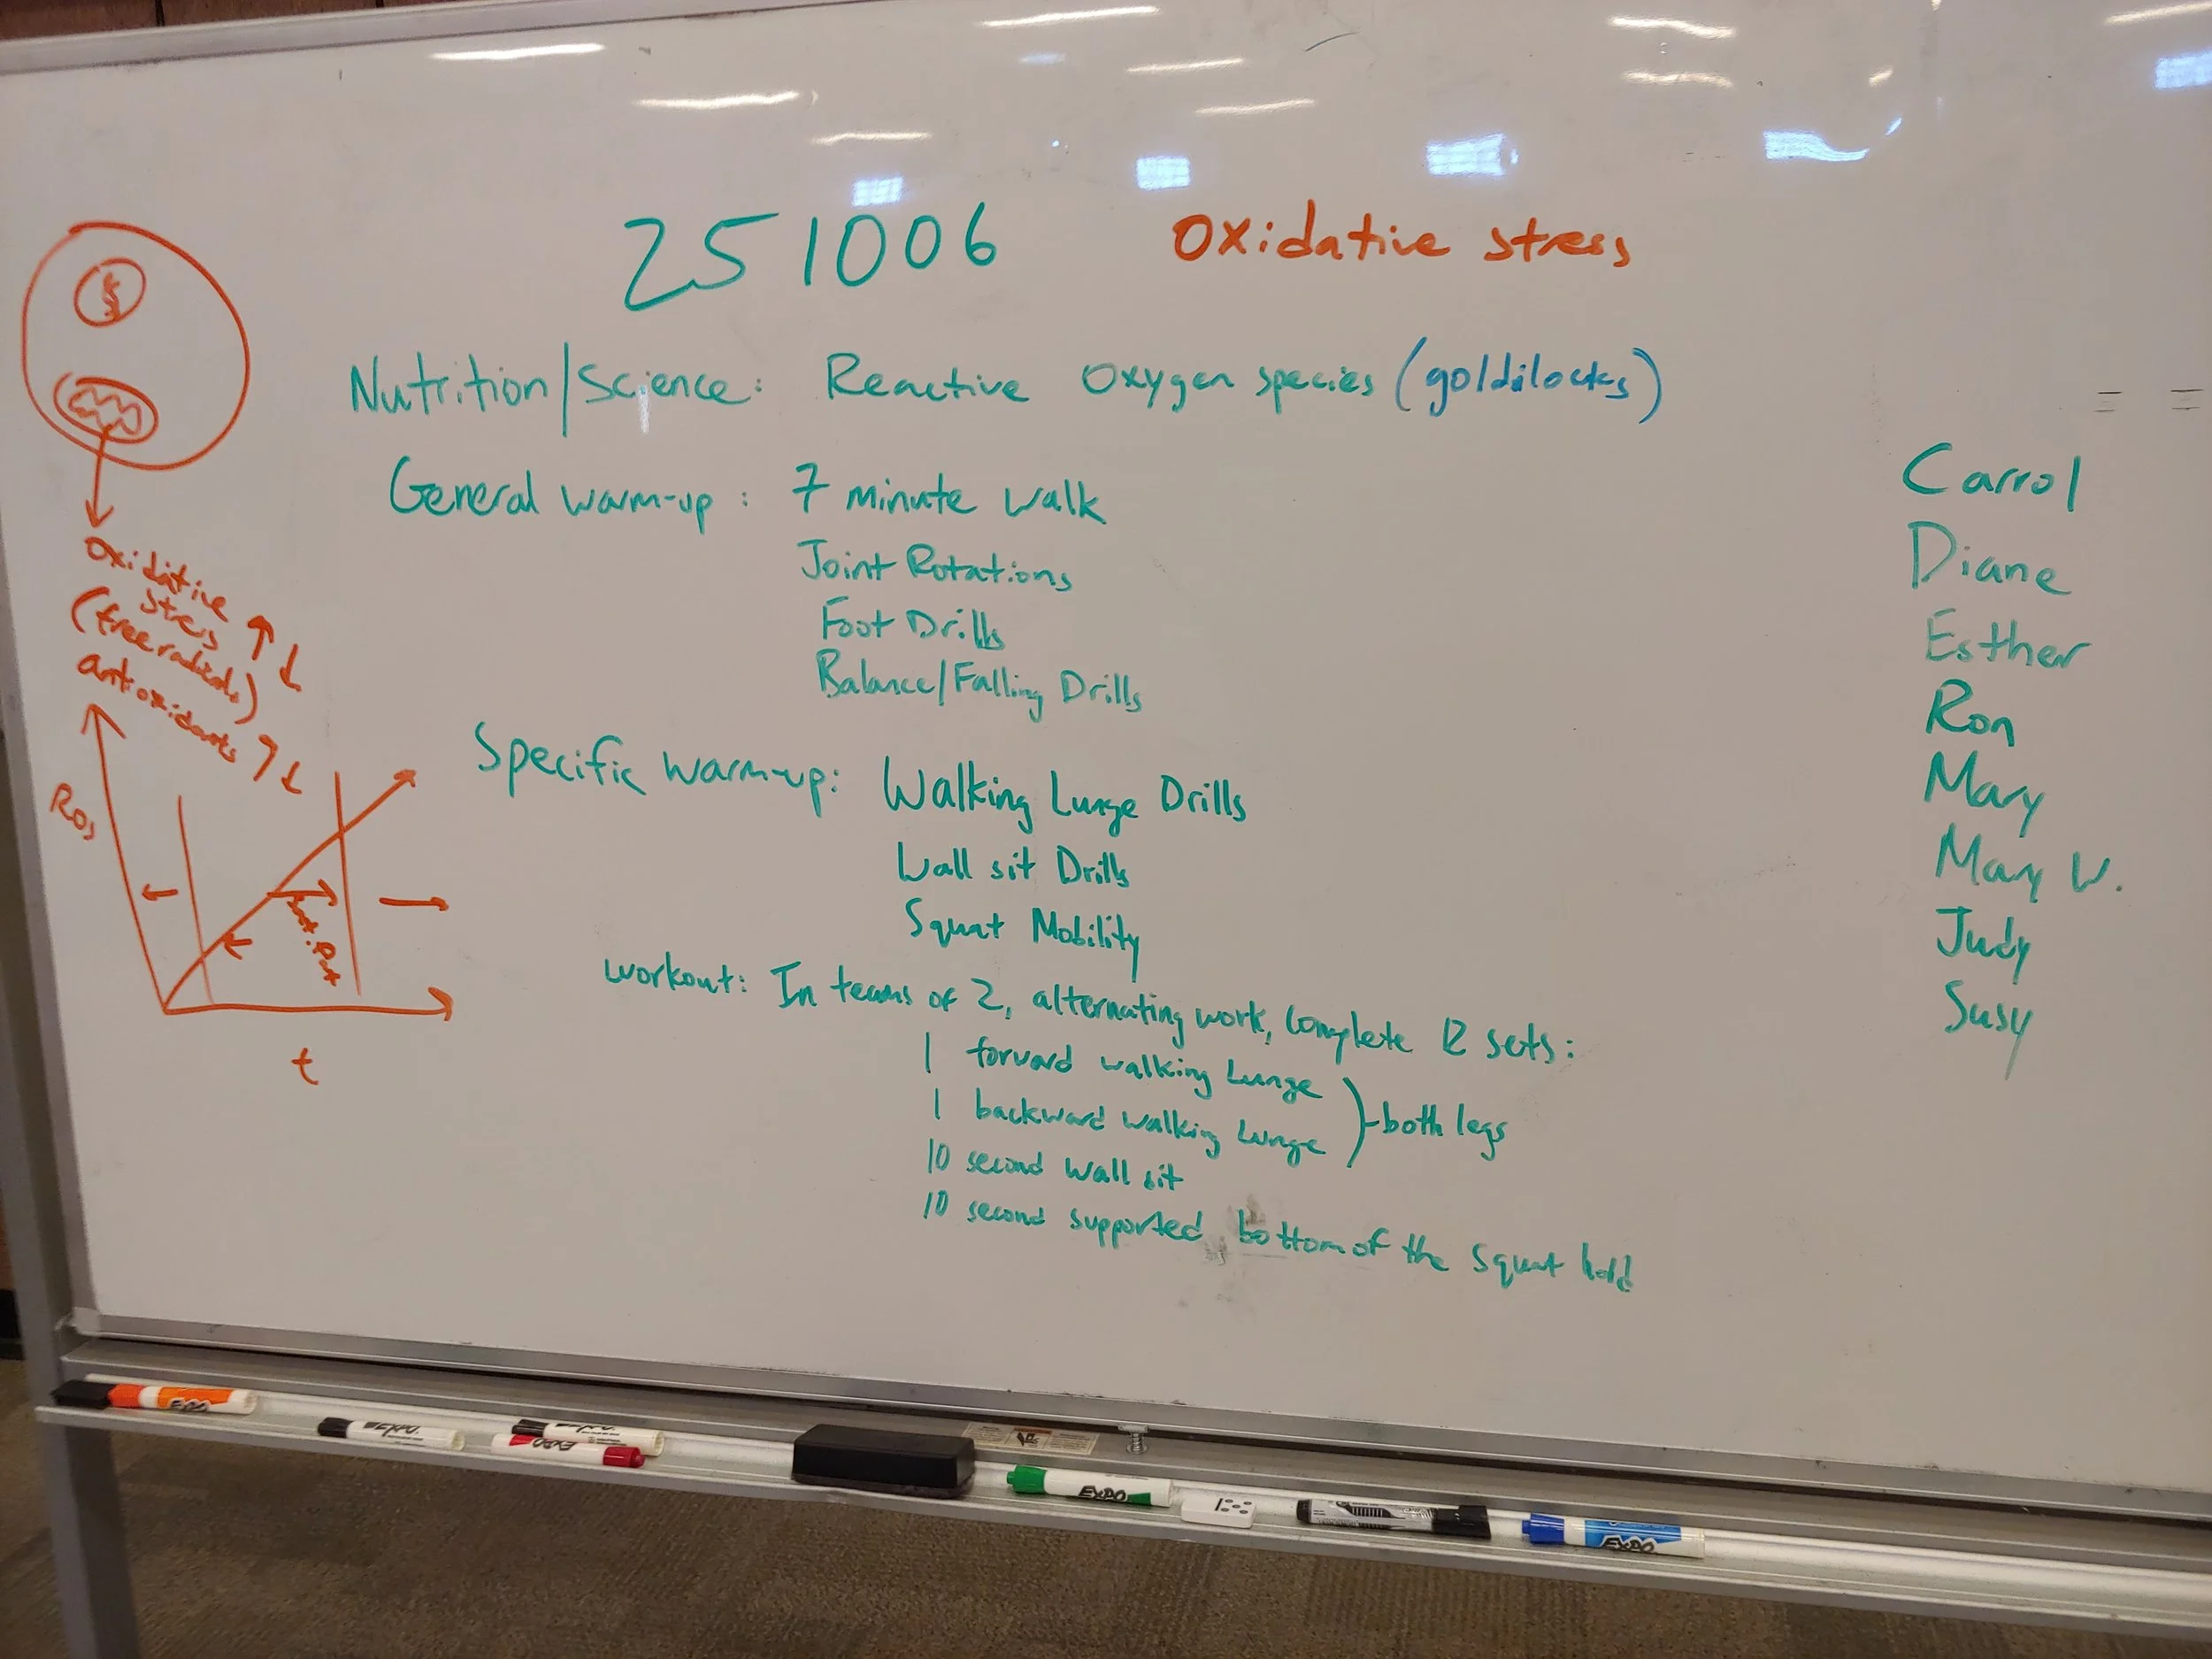 251006
Oxidative stress
Nutrition/Science: Reactive Oxygen species (goldilocks)
General warm-up: 7 minute walk
Joint Rotations
Foot Drills
Balance/Falling Drills
Specific warm-up: Walking Lunge Drills
Wall sit Drills
Squat Mobility
workout: In teams of 2, alternating work, complete 12 sets:
1 forward walking Lunge
1 backward walking Lunge
)-both legs
10 second wall sit
10 second supported bottom of the squat hold
Oxidative
stress ↑ ↓
(free radicals)
antioxidants ↑ ↓
ROS
t
Carrol
Diane
Esther
Ron
Mary
Mary W.
Judy
Susy
EXPO
EXPO
EXPO
EXPO
EXPO